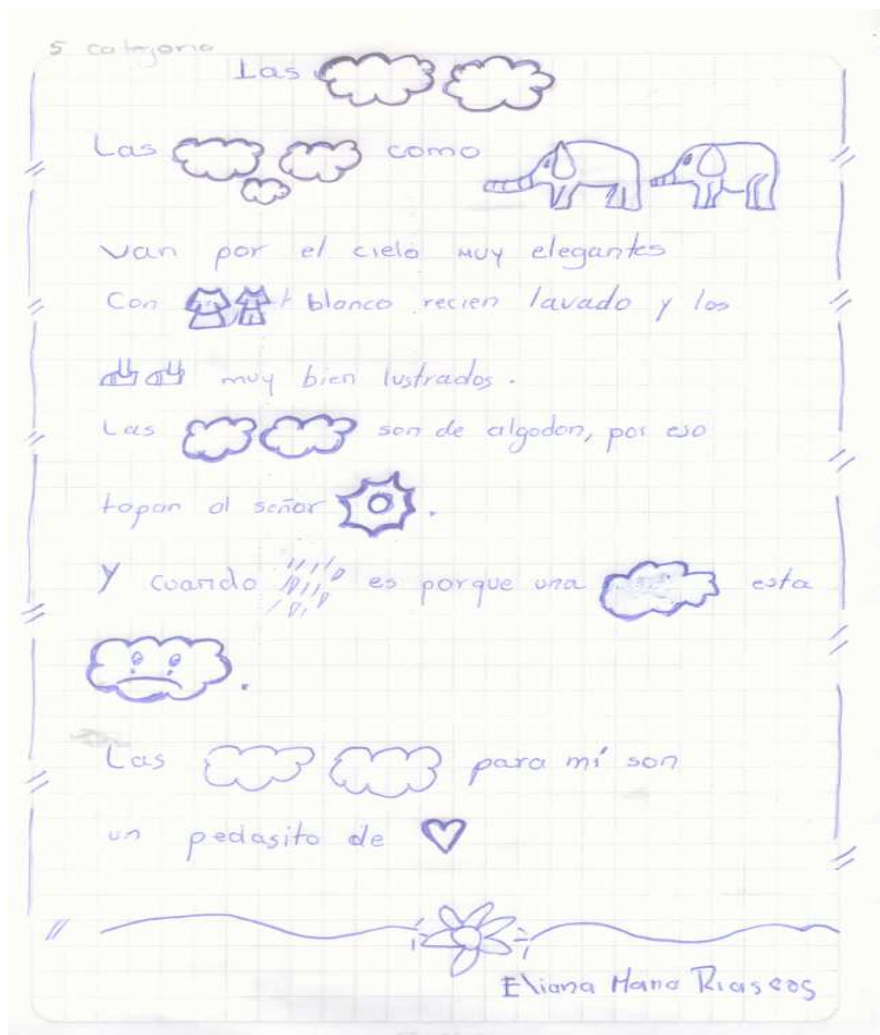 5 categoria
Las
Las como
van por el cielo muy elegantes
Con blanco recien lavado y los
muy bien lustrados.
Las son de algodon, por eso
tapan al señor .
Y cuando es porque una esta
.
Las para mí son
un pedasito de
Eliana Riascos